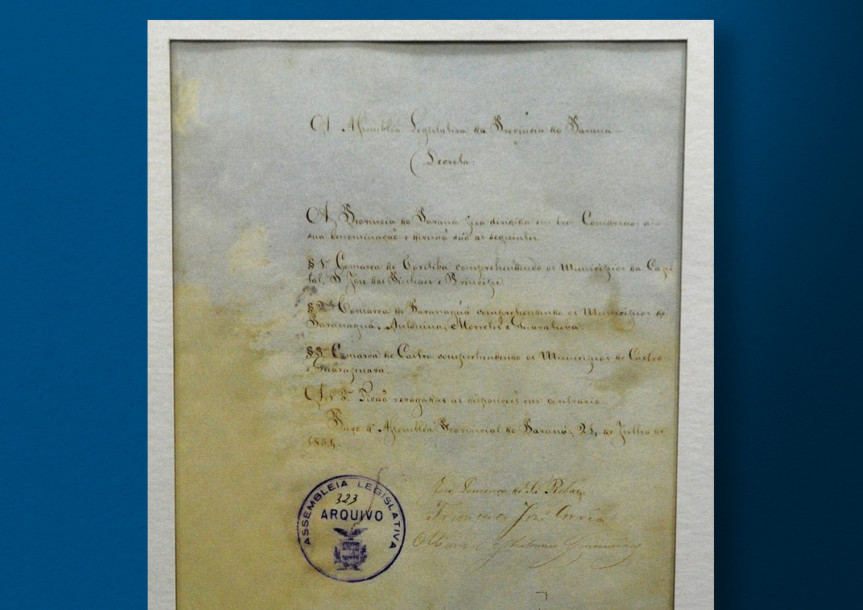 A Assemblea Legislativa da Provincia do Paraná
Decreta
A Provincia do Paraná fica dividida em tres Comarcas a
sua denominação e divisas são as seguintes
§ 1º Comarca de Coritiba comprehendendo os Municipios da Capi
tal, S. José dos Pinhaes e Principe
§ 2º Comarca de Paranaguá comprehendendo os Municipios de
Paranaguá, Antonina, Morretes e Guaratuba
§ 3º Comarca de Castro comprehendendo os Municipios de Castro
e Guarapuava
Art 2º Ficão revogadas as disposições em contrario
Paço d' Assemblea Provincial do Paraná, de Julho de
1854
ASSEMBLEIA LEGISLATIVA
323
ARQUIVO
Francisco José